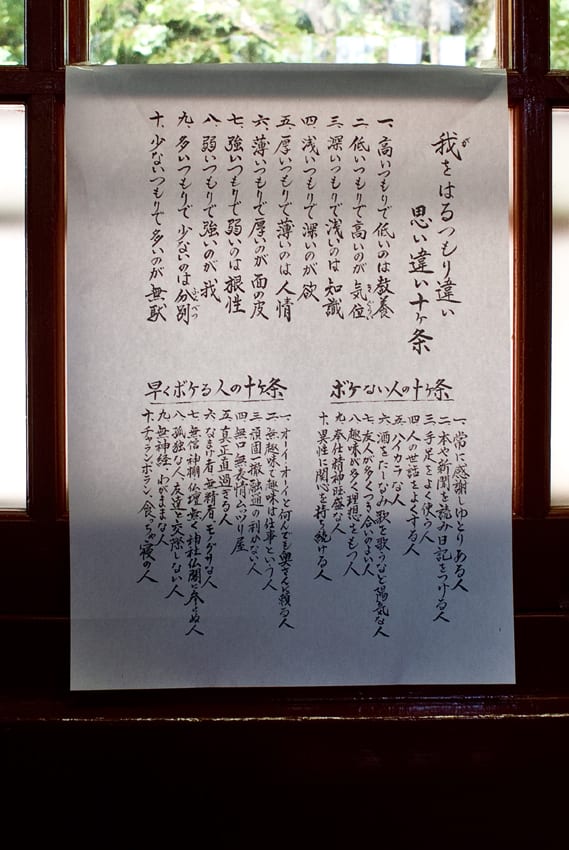 我をはるつもり違い
思い違い十ヶ条
一、高いつもりで低いのは教養
二、低いつもりで高いのが気位
三、深いつもりで浅いのは知識
四、浅いつもりで深いのが欲
五、厚いつもりで薄いのは人情
六、薄いつもりで厚いのが面の皮
七、強いつもりで弱いのは根性
八、弱いつもりで強いのが我
九、多いつもりで少ないのは分別
十、少ないつもりで多いのが無駄
ボケない人の十ヶ条
一、常に感謝しゆとりある人
二、本や新聞を読み日記をつける人
三、手足をよく使う人
四、人の世話をよくする人
五、ハイカラな人
六、酒をたしなみ歌を歌うなど陽気な人
七、友人が多くつき合いのよい人
八、趣味が多く理想をもつ人
九、奉仕精神旺盛な人
十、異性に関心を持ち続ける人
早くボケる人の十ヶ条
一、オーイオーイと何んでも奥さんに頼る人
二、無趣味で趣味は仕事という人
三、頑固一徹融通の利かない人
四、無口無表情ムッツリ屋
五、真正直過ぎる人
六、なまけ者無精者モノグサな人
七、無信神棚仏壇無く神社仏閣に参らぬ人
八、孤独な人友達と交際しない人
九、無神経わがままな人
十、チャランポラン、食っちゃ寝の人